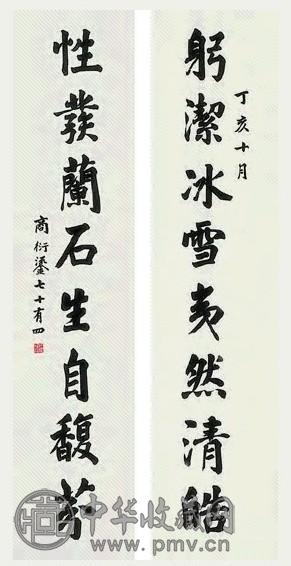 丁亥十月
躬潔冰雪夷然清皓
性發蘭石生自馥芬
商衍鎏七十有四
中华收藏网
www.pmv.cn